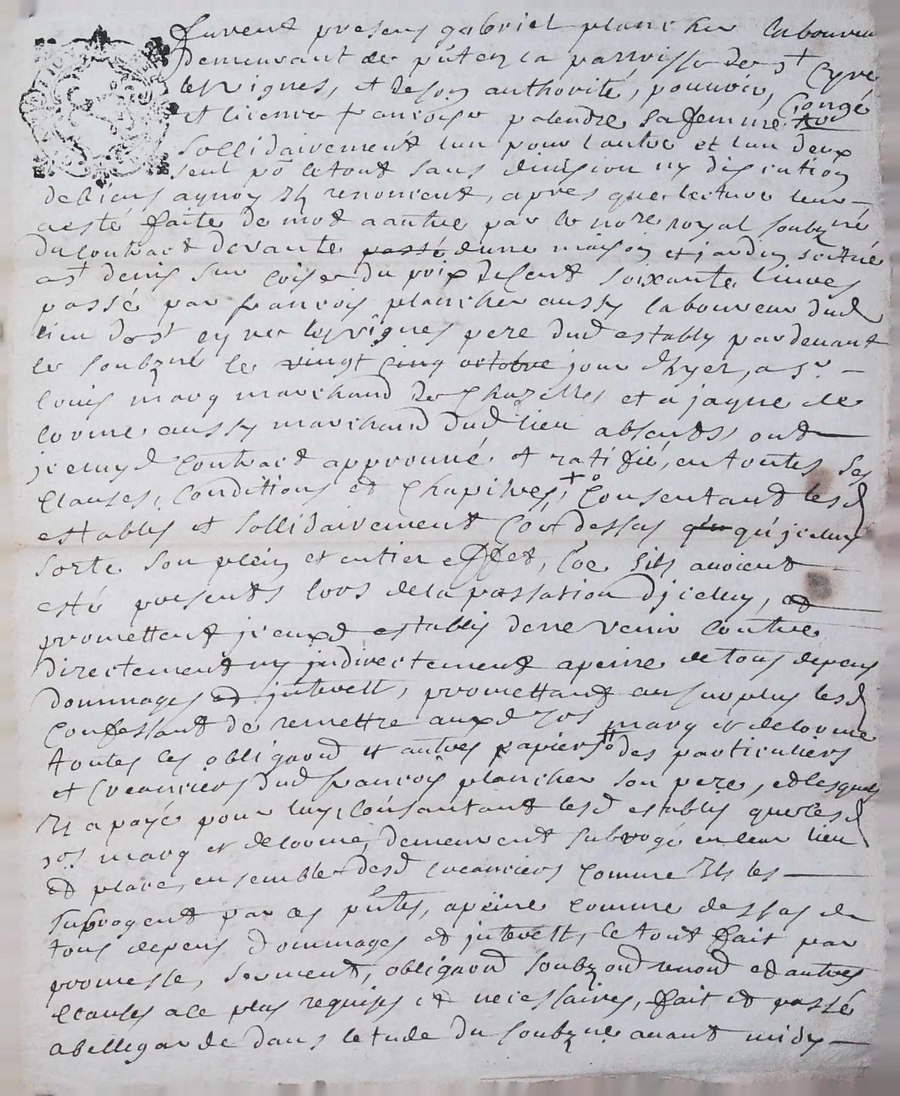 furent presens gabriel plancher laboureur
demeurant de putez la parroisse de st Cyre
les vignes, et de son authorité, pouvoir, Congé
et licence francoise palendre sa femme
sollidairement lun pour lautre et lun deux
seul po le tout sans division ny discution
de biens aquoy Ils renoncent, apres que lecture leur
a esté faite de mot a autre par le nore royal soubzné
du contract de vante passé dune maison et jardin scitué
a st denis sur Coise du prix de Cent soixante livres
passé par francois plancher aussy laboureur dud
lieu de st cyre les vignes pere dud estably pardevant
le soubzné le vingt cinq octobre jour dhyer, a sr
louis marq marchand de Chazelles et a jayme de
lorme aussy marchand dud lieu absents ont
jceluy d Contract approuvé et ratiffié, en toutes ses
Clauses, Conditions et Chapitres, Consentant lesd
establys et sollidairement Coe dessus qu'jceluy
sorte son plein et entier effect, Coe sils avoient
esté presents lors de la passation djceluy, et
promettent jceux d establis de ne venir Contre
directement ny jndirectement a peine de tous depens
dommages et jnterest, promettant au surplus lesd
Confessant de remettre auxd srs marq et delorme
toutes les obligaons et autres papiers des particuliers
et Creanciers dud francois plancher son pere, et lesquels
Il a payé pour luy, Consantant lesd establys que lesd
srs marq et delorme, demeurent subrogé en leur lieu
et place, ensemble desd creanciers Comme Ils les
subrogent par ces pntes, a peine comme dessus de
tous depens dommages et jnterest, le tout fait par
promesse, serment, obligaon soubzon renon et autres
clauses a ce plus requises et necessaires, fait et passé
a bellegarde dans letude du soubzné avant midy